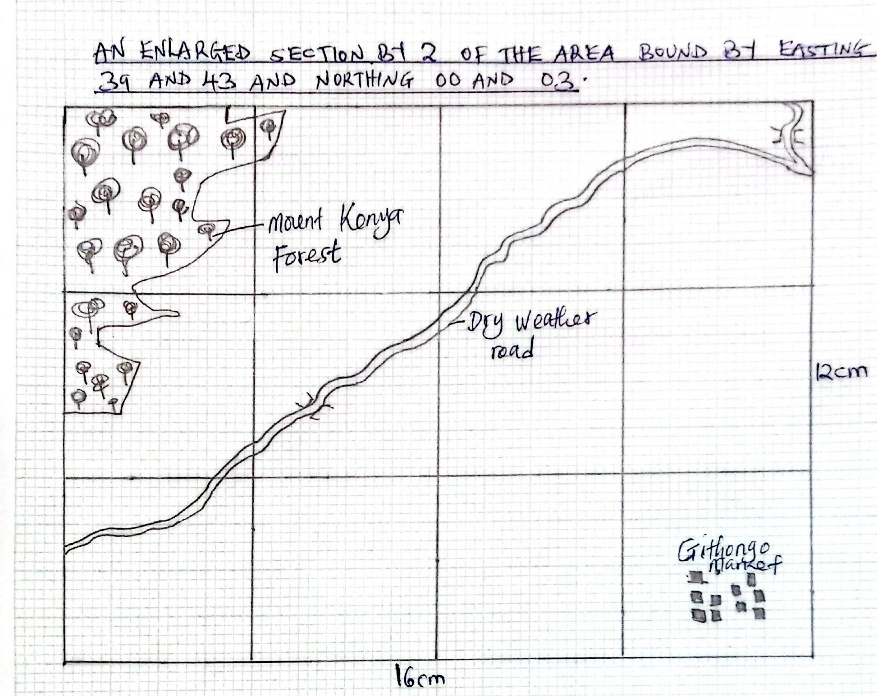 AN ENLARGED SECTION BY 2 OF THE AREA BOUND BY EASTING
39 AND 43 AND NORTHING 00 AND 03.
Mount Kenya
Forest
Dry Weather
road
12cm
Githongo
Market
16cm